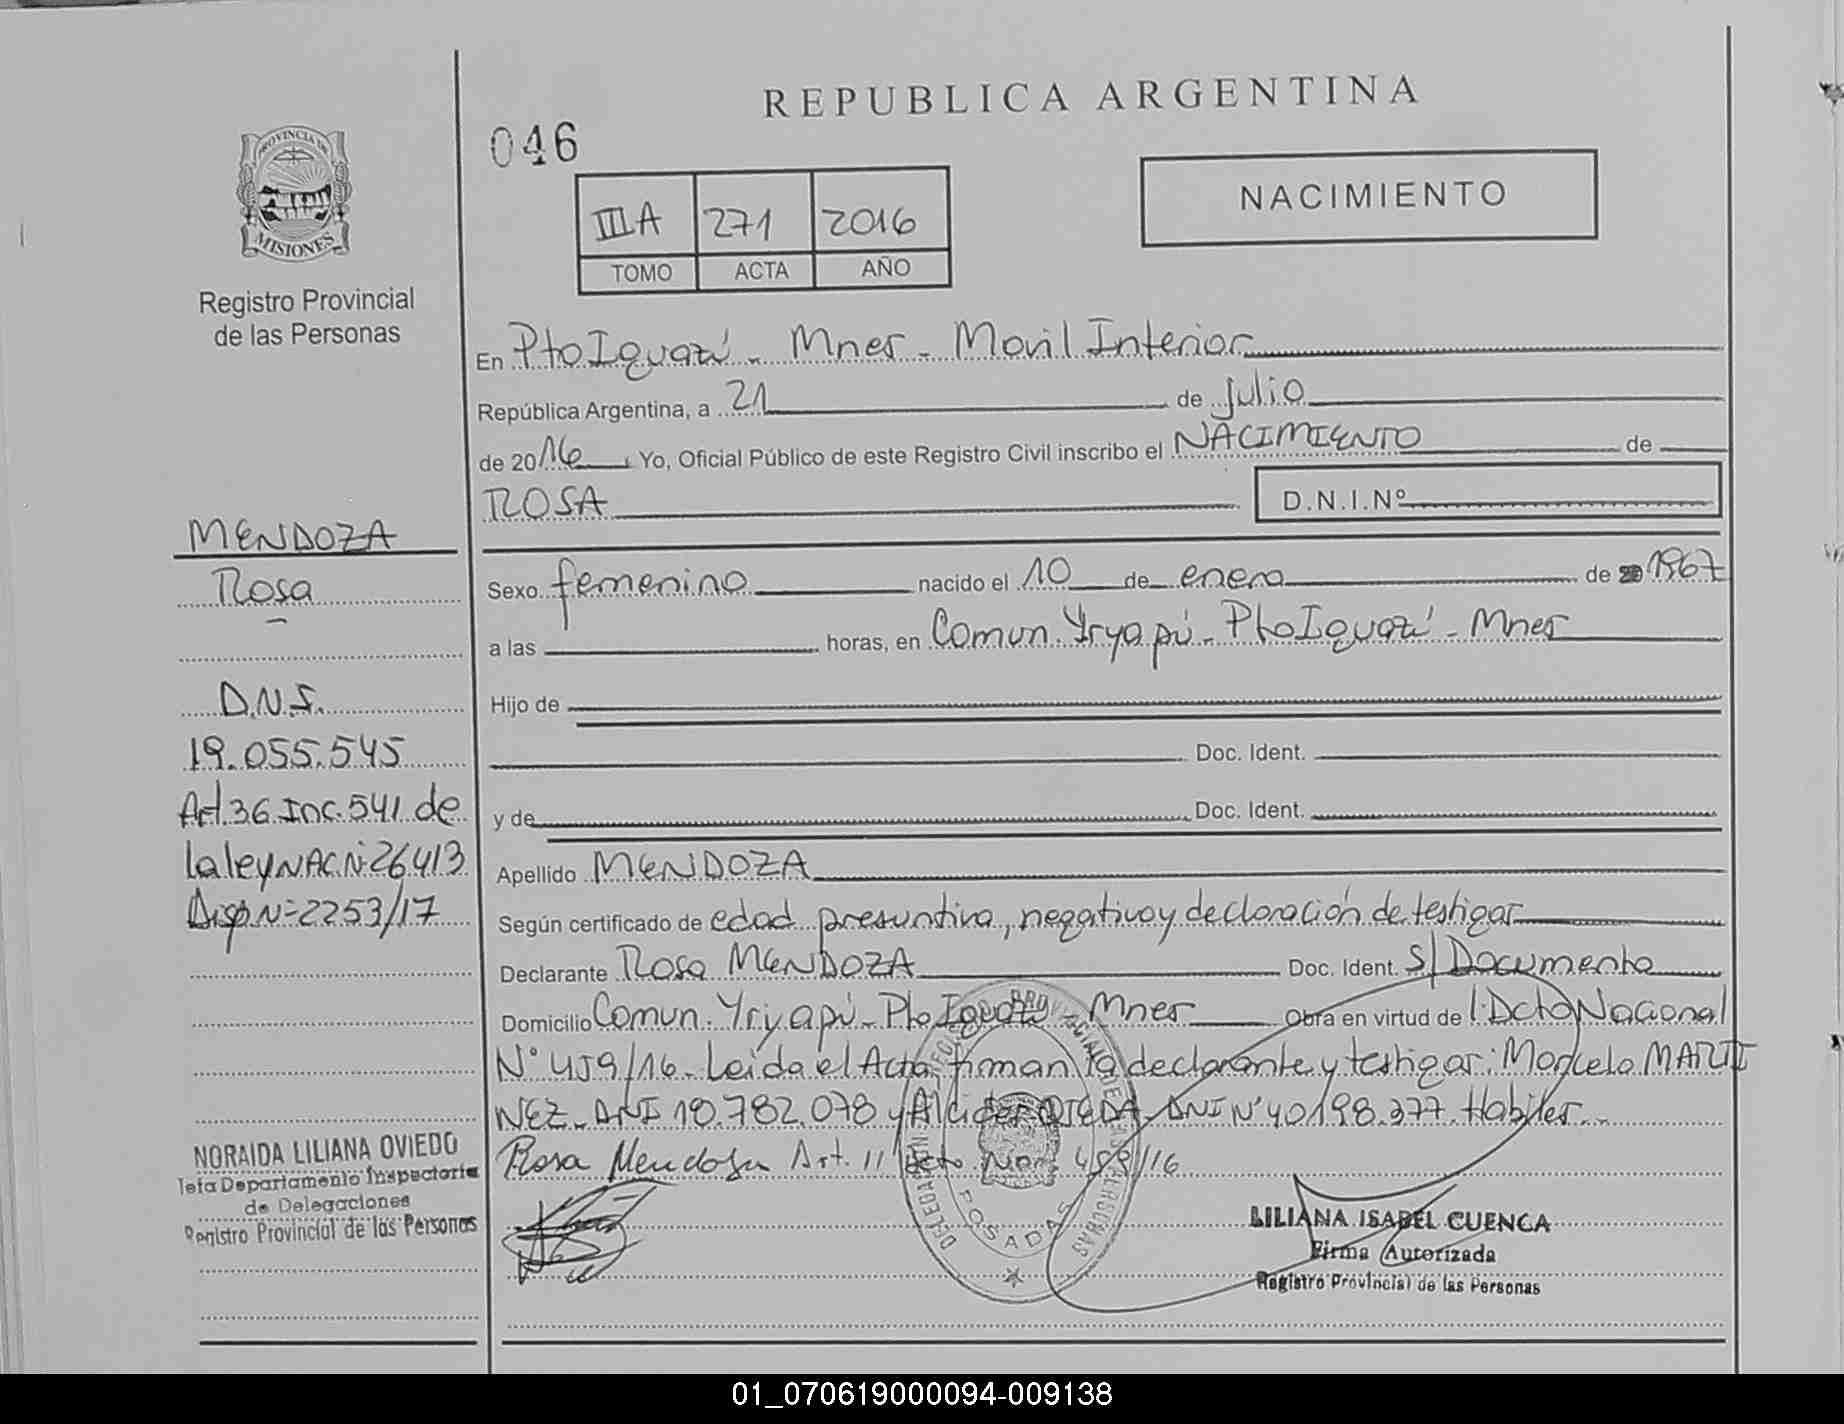 REPUBLICA ARGENTINA
046
NACIMIENTO
IIIA 271 2016
TOMO ACTA AÑO
PROVINCIA DE
MISIONES
Registro Provincial
de las Personas
En Pto Iguazú - Mnes - Movil Interior
República Argentina, a 21 de julio
de 2016 Yo, Oficial Público de este Registro Civil inscribo el NACIMIENTO de
ROSA D.N.I.Nº
Sexo femenino nacido el 10 de enero de 20 1967
a las horas, en Comun. Yryapú - Pto Iguazú - Mnes
Hijo de
Doc. Ident.
y de Doc. Ident.
Apellido MENDOZA
Según certificado de edad presuntiva, negativo y declaración de testigos
Declarante Rosa MENDOZA Doc. Ident. S/Documento
Domicilio Comun. Yriyapú - Pto Iguazú - Mnes Obra en virtud de l. Dcto Nacional
N° 459/16 - Leida el Acta, firman la declarante y testigos: Marcelo MARTI
NEZ - DNI 18.782.078 y Alcides OJEDA DNI N° 40198.377. Habiles
Rosa Mendoza Art. 11 Dcto Nac. 459/16
MENDOZA
Rosa
D.N.I.
19.055.545
Art. 36 Inc. 541 de
la ley NAC. N° 26413
Disp. N= 2253/17
NORAIDA LILIANA OVIEDO
Jefa Departamento Inspectoria
de Delegaciones
Registro Provincial de las Personas
POSADAS
LILIANA ISABEL CUENCA
Firma Autorizada
Registro Provincial de las Personas
01_070619000094-009138